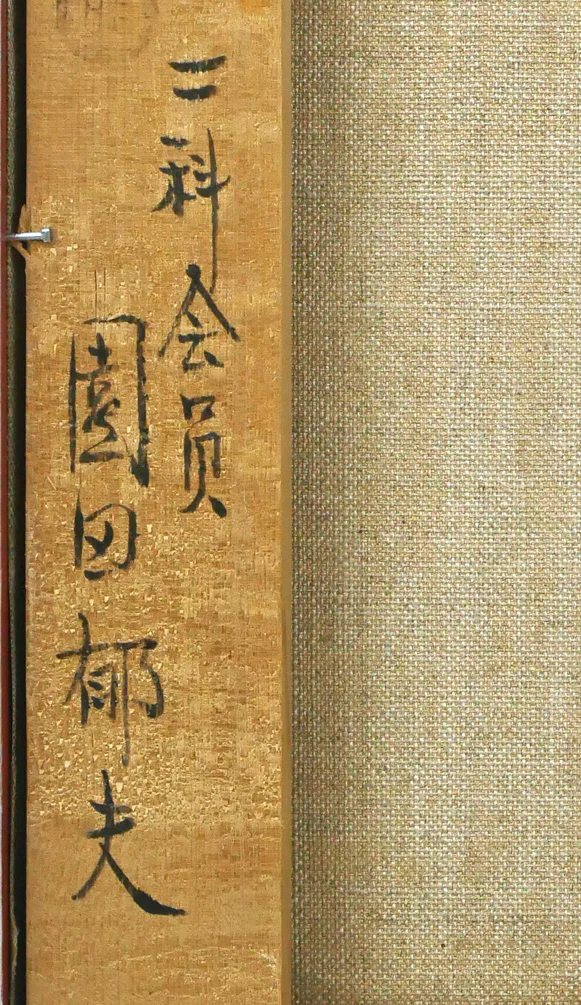 二科会員
園田郁夫